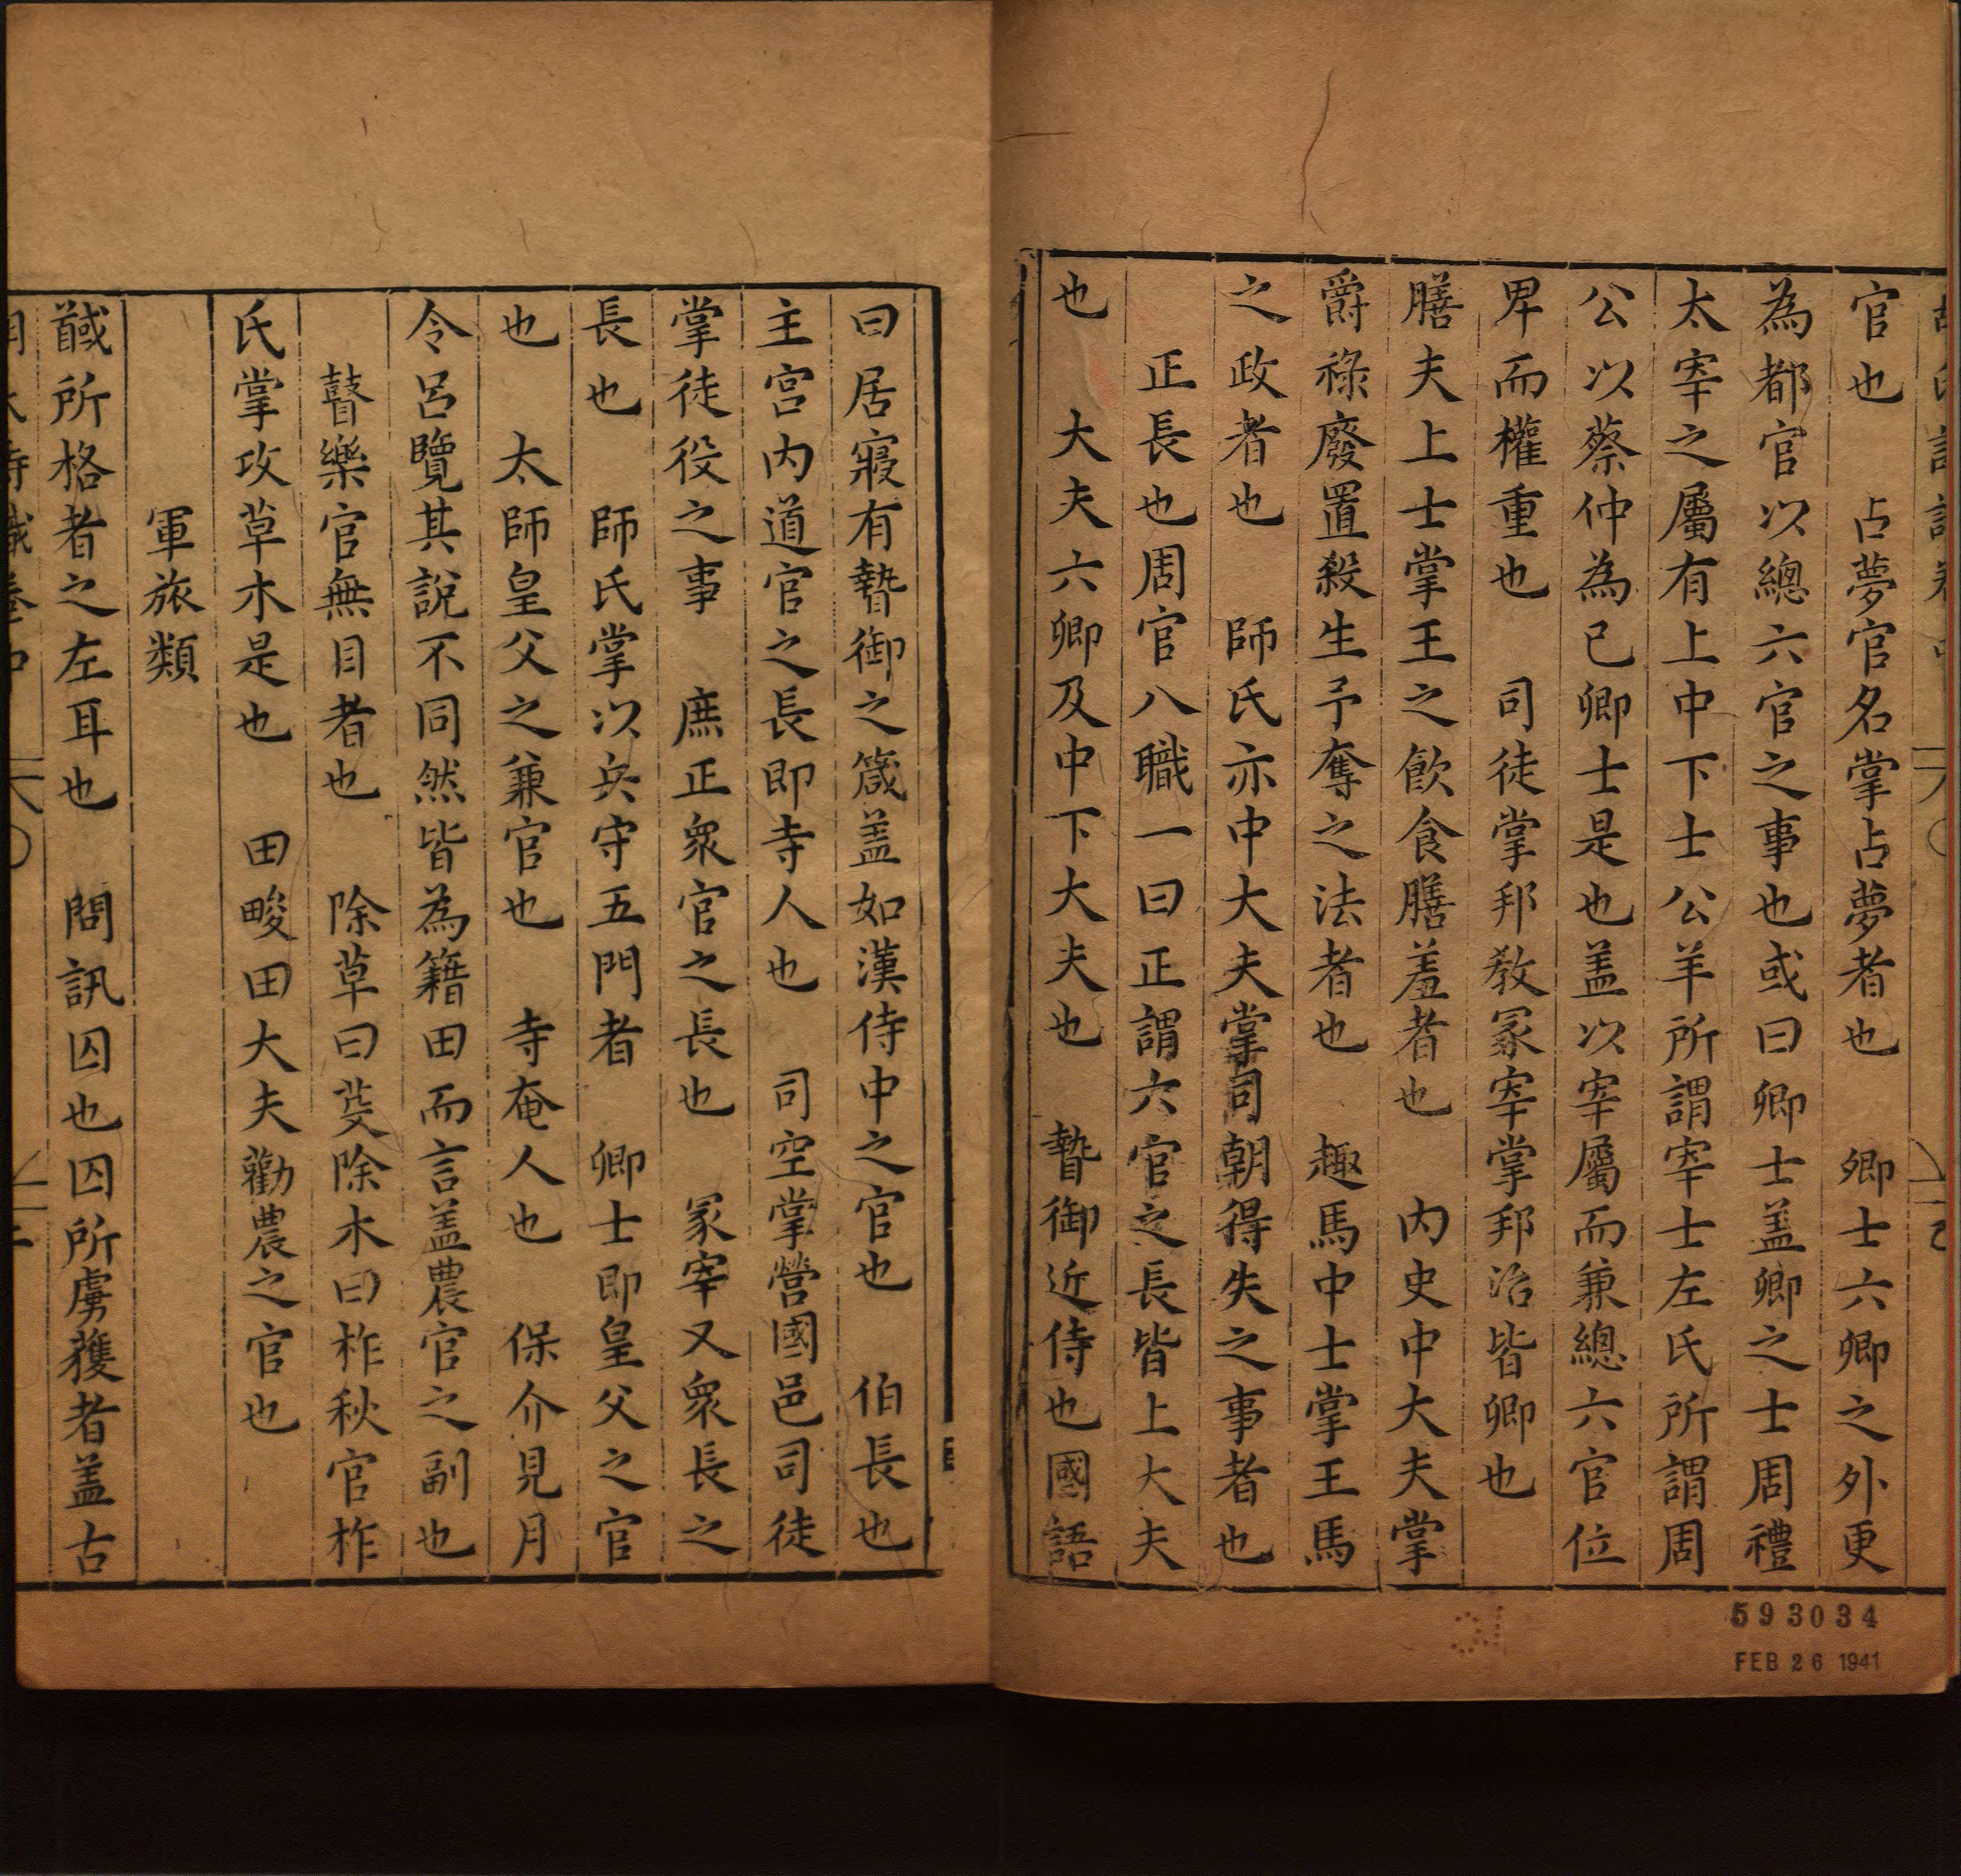 官也　占夢官名掌占夢者也　卿士六卿之外更
為都官以總六官之事也或曰卿士盖卿之士周禮
太宰之屬有上中下士公羊所謂宰士左氏所謂周
公以蔡仲為已卿士是也盖以宰屬而兼總六官位
卑而權重也　司徒掌邦教冢宰掌邦治皆卿也
膳夫上士掌王之飲食膳羞者也　内史中大夫掌
爵祿廢置殺生予奪之法者也　趣馬中士掌王馬
之政者也　師氏亦中大夫掌司朝得失之事者也
正長也周官八職一曰正謂六官之長皆上大夫
也　大夫六卿及中下大夫也　暬御近侍也國語
曰居寢有暬御之箴盖如漢侍中之官也　伯長也
主宫内道官之長即寺人也　司空掌營國邑司徒
掌徒役之事　庶正衆官之長也　冢宰又衆長之
長也　師氏掌以兵守五門者　卿士即皇父之官
也　太師皇父之兼官也　寺奄人也　保介見月
令呂覽其說不同然皆為籍田而言盖農官之副也
瞽樂官無目者也　除草曰芟除木曰柞秋官柞
氏掌攻草木是也　田畯田大夫勸農之官也
軍旅類
馘所格者之左耳也　問訊囚也囚所虜獲者盖古
593034
FEB 26 1941